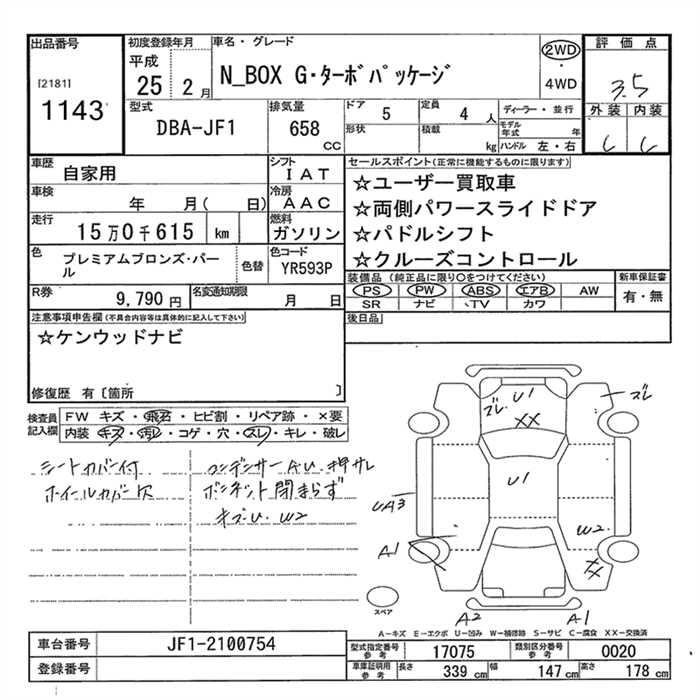 出品番号
[2181]
1143
初度登録年月
平成
25 2月
車名・グレード
N_BOX G・ターボパッケージ
2WD
・
4WD
評価点
3.5
外装 内装
C C
型式
DBA-JF1
排気量
658
CC
ドア 5
形状
定員 4 人
積載 kg
ディーラー・並行
モデル年式 年
ハンドル 左・右
車歴 自家用
シフト IAT
車検 年 月( 日)
冷房 AAC
走行 15万0千615 km
燃料 ガソリン
色 プレミアムブロンズ・パール
色替
色コード YR593P
R券 9,790円
名変通知期限 月 日
セールスポイント(正常に機能するものに限ります)
☆ユーザー買取車
☆両側パワースライドドア
☆パドルシフト
☆クルーズコントロール
装備品(純正品に限り○をつけてください)
PS PW ABS エアB AW
SR ナビ TV カワ
新車保証書
有・無
後日品
注意事項申告欄(不具合内容等は具体的に記入して下さい)
☆ケンウッドナビ
修復歴 有〔箇所 〕
検査員記入欄
FW キズ・飛石・ヒビ割・リペア跡・×要
内装 キズ・汚レ・コゲ・穴・スレ・キレ・破レ
シートカバー付
ホイールカバー欠
コンデンサーA.U.押サレ
ボンネット閉まらず
キズU.W2
U1
ズレ
XX
ズレ
U1
UA3
A1
W2
XX
A2
A1
スペア
A-キズ E-エクボ U-凹み W-補修跡 S-サビ C-腐食 XX-交換済
車台番号 JF1-2100754
登録番号
型式指定番号参考 17075
類別区分番号参考 0020
車庫証明用参考 長さ 339cm 幅 147cm 高さ 178cm